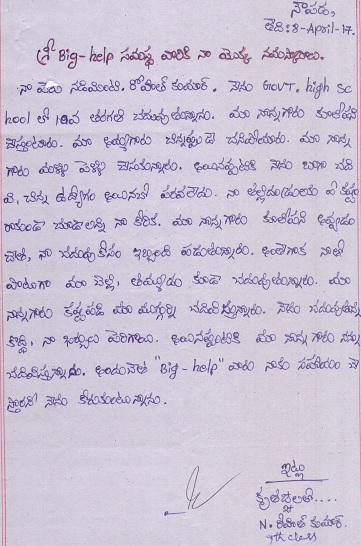 నౌపడ,
తేది: 8-April-17.
శ్రీ Big-help సమస్థ వారికి నా యొక్క నమస్కారాలు.
నా పేరు నడిమింటి. రోహిత్ కుమార్. నేను GOVT. high sc
hool లో 10వ తరగతి చదువుతున్నాను. మా నాన్నగారు కూలిపని
చేస్తుంటారు. మా అమ్మగారు చిన్నప్పుడే చనిపోయారు. మా నాన్న
గారు మళ్లీ పెళ్లి చేసుకున్నారు. అయినప్పటికి నేను బాగా చది
వి, చిన్న ఉద్యోగం అయినా పరవాలేదు. నా తల్లిదండ్రులను ఏ కష్టం
రాకుండా చూడాలన్నది నా కోరిక. మా నాన్నగారు కూలిపని
చేసి, నా చదువుకోసం ఇబ్బంది పడుతున్నారు. అంతేగాక నాతో
పాటుగా మా చెల్లి, తమ్ముడు కూడా చదువుతున్నారు. మా
నాన్నగారు కష్టపడి మా ముగ్గుర్ని చదివిస్తున్నారు. నేను చదువుతున్న
కొద్ది, నా ఖర్చులు పెరిగాయి. అయినప్పటికి మా నాన్నగారు నన్ను
చదివిస్తున్నారు. అందుచేత "Big-help" వారు నాకు సహాయం చే
స్తారని నేను కోరుకుంటున్నాను.
ఇట్లు
కృతజ్ఞతలతో....
N. రోహిత్ కుమార్.
9th class